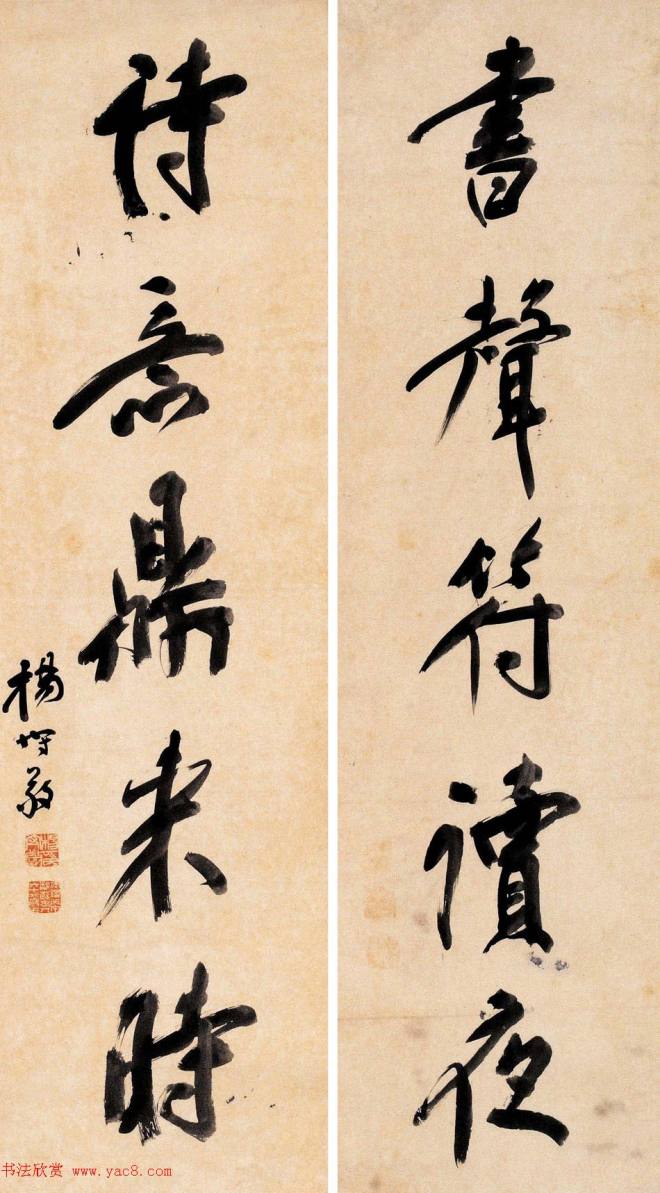 書聲符讀夜
詩意鼎來時
楊守敬
书法欣赏 www.yac8.com